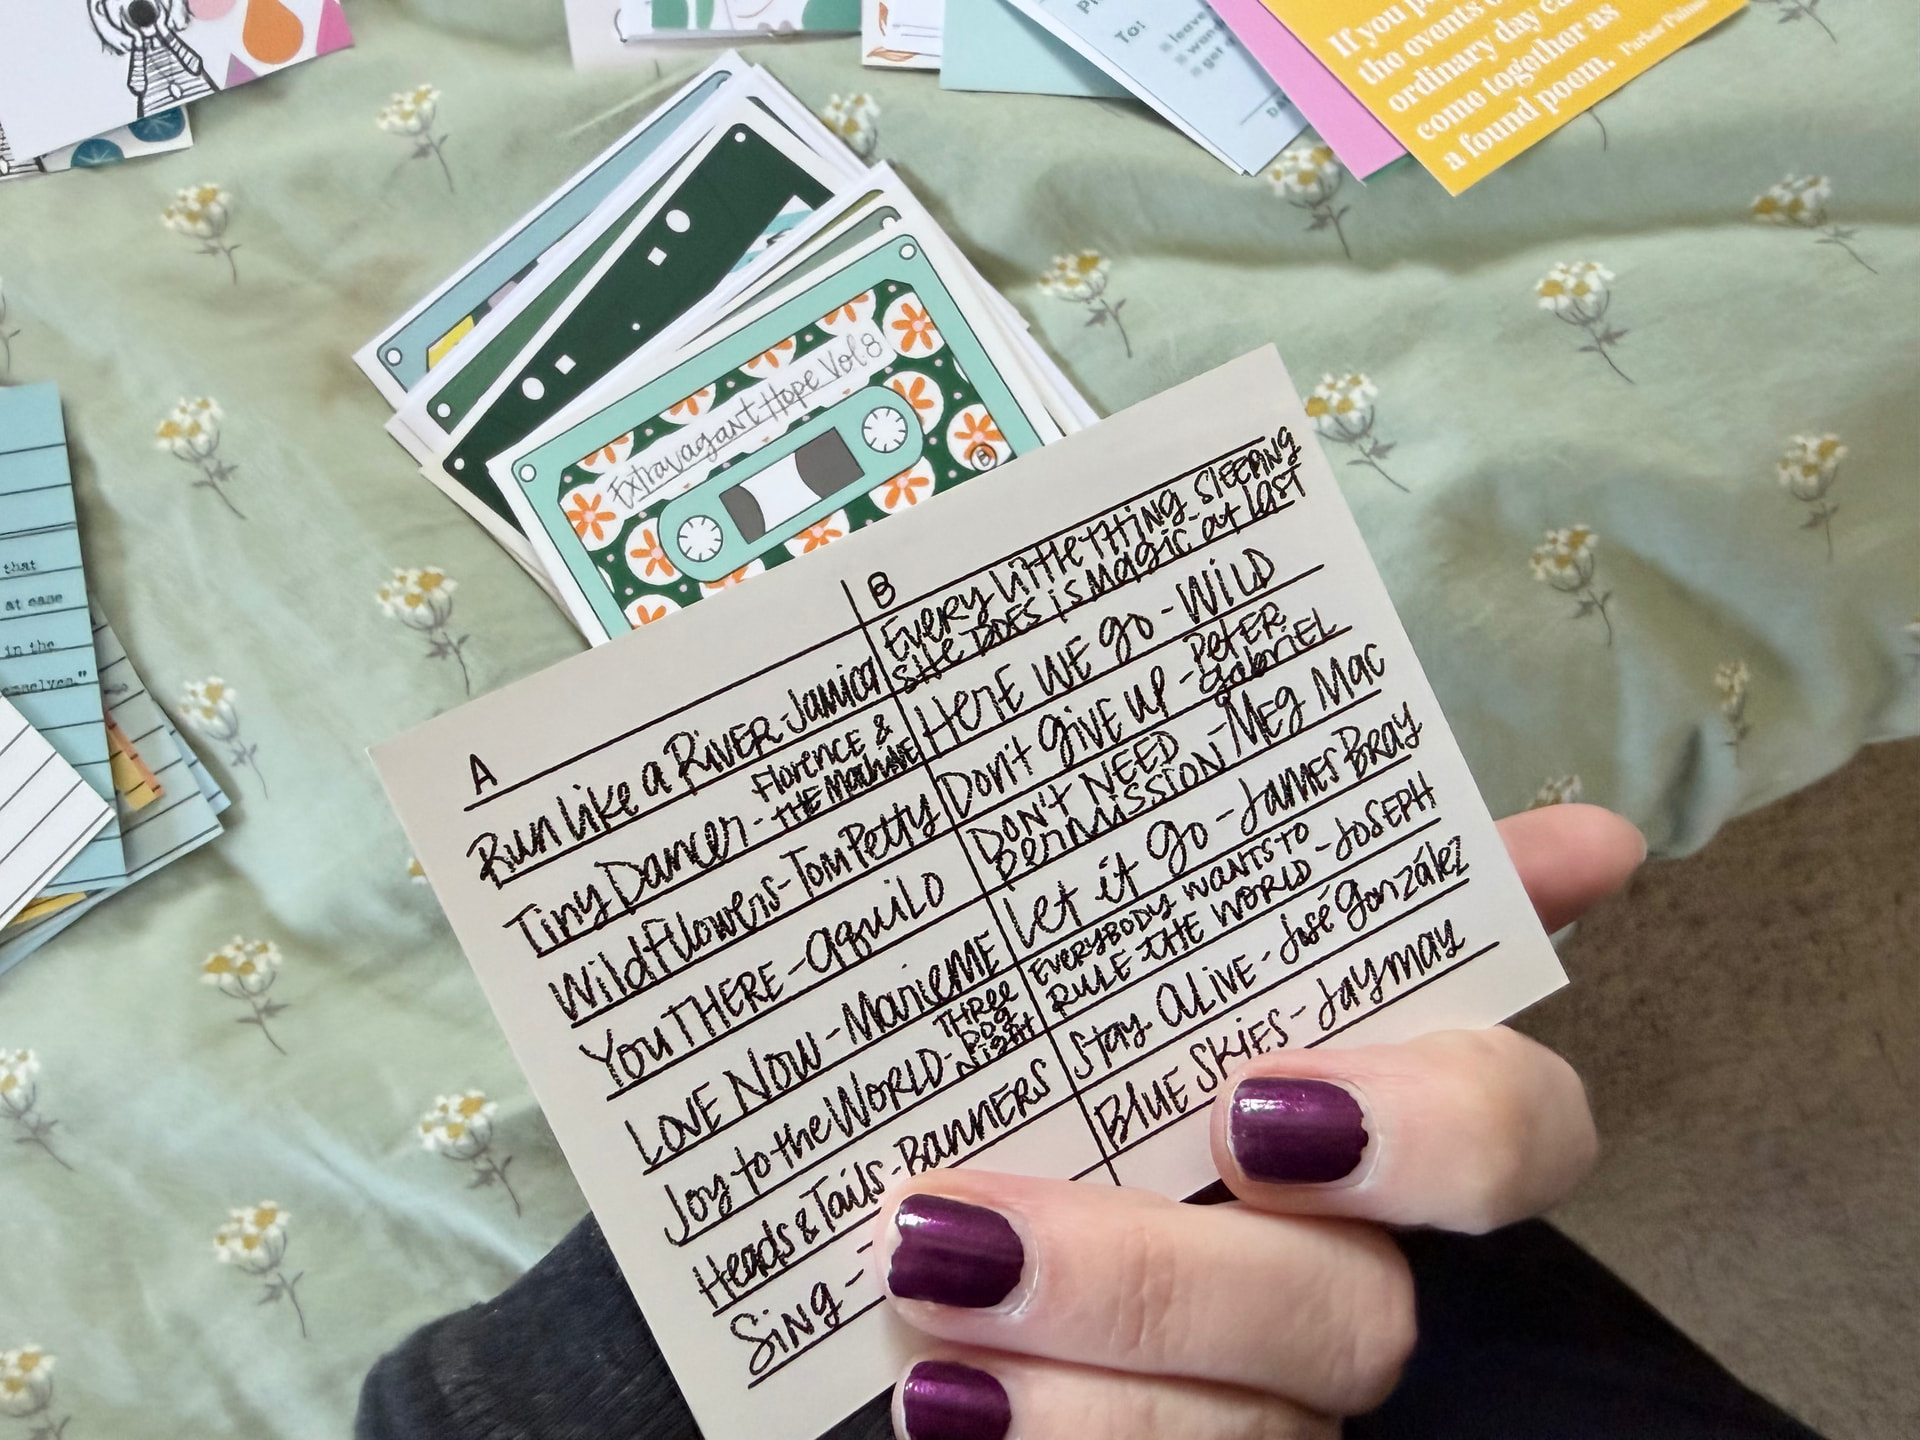 If you p
the events o
ordinary day ca
come together as
a found poem.
Parker Palmer
To:
leave
wan
get a
Extravagant Hope Vol 8
B
that
at ease
in the
emselves."
A
Run like a River - Jamica
Tiny Dancer - Florence &
the Machine
Wildflowers - Tom Petty
You There - Aquilo
Love Now - Marieme
Joy to the World - Three
Dog
Night
Heads & Tails - Banners
Sing -
B
Every little thing - Sleeping
she does is magic - at last
Here we go - Wild
Don't give up - Peter
Gabriel
Don't need
Permission - Meg Mac
Let it go - James Bray
Everybody wants to
Rule the World - Joseph
Stay Alive - José González
Blue Skies - Jaymay